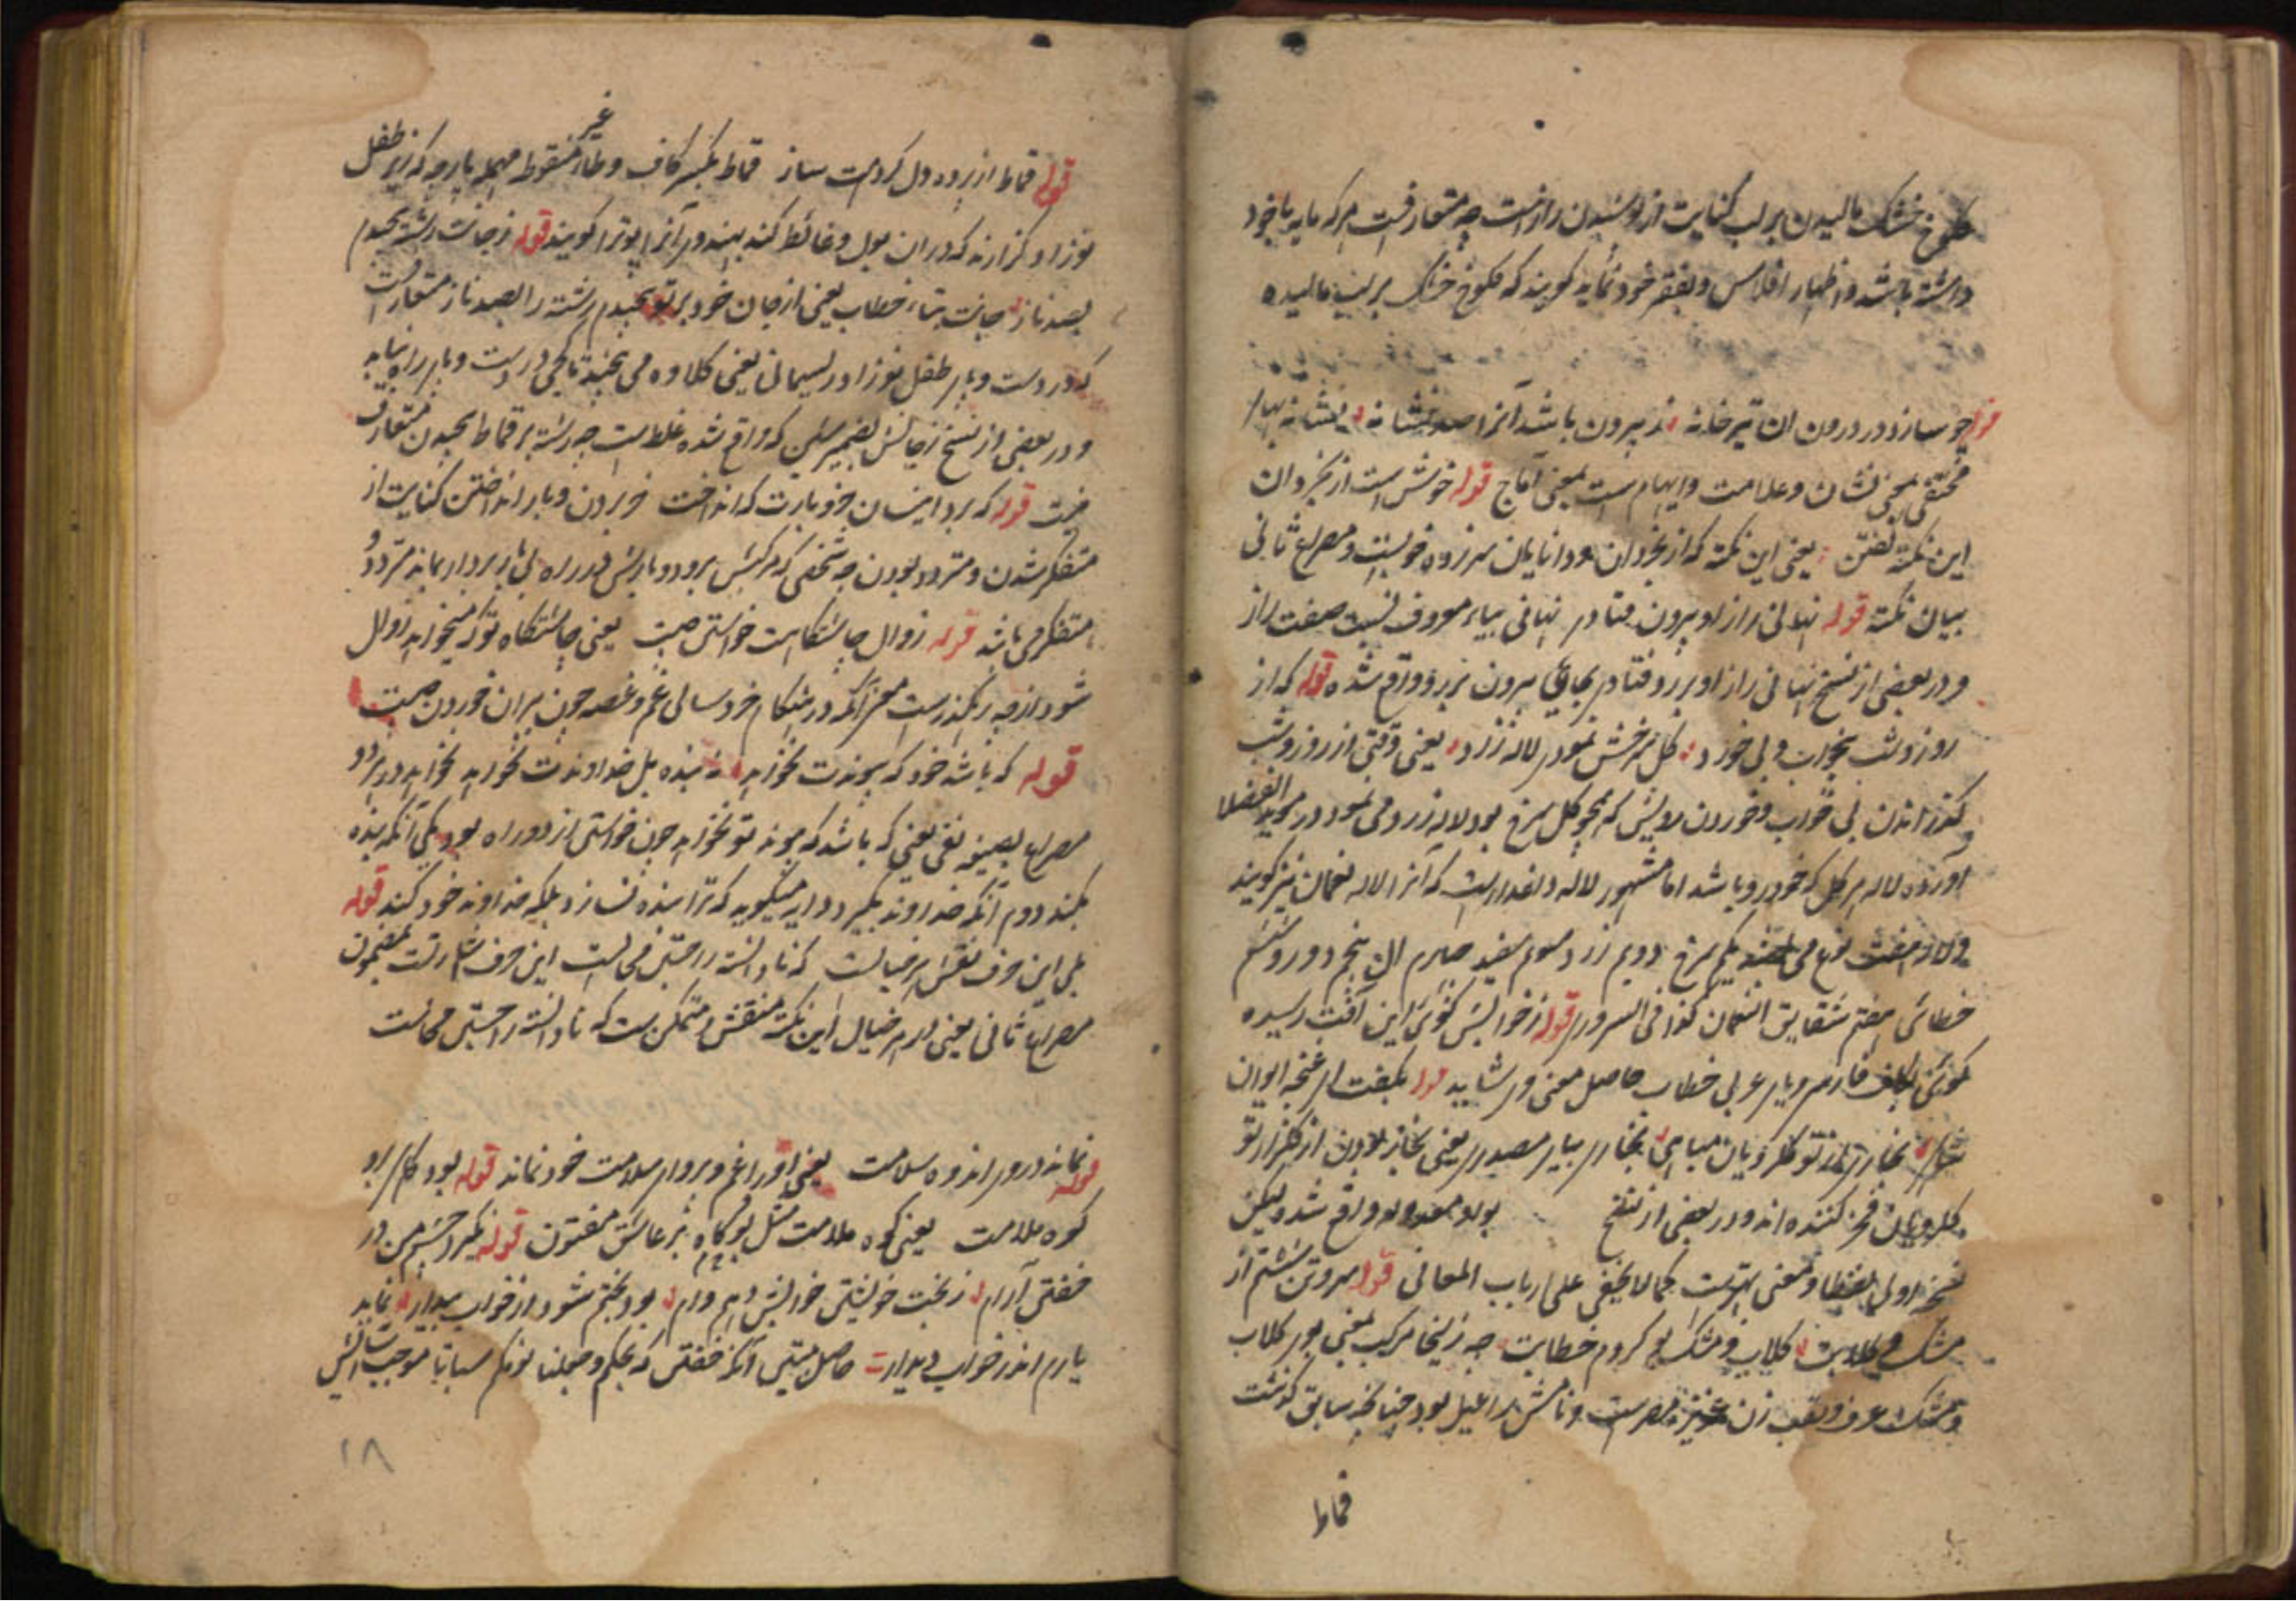 کلوخ خشک مالیدن بر لب کنایت از پوشیدن رازست چه متعارفست هر که مایه با خود
داشته باشد و اظهار افلاس و فقر خود نماید گویند که کلوخ خشک بر لب مالیده
قوله چو سازد در درون ان تیر خانه ز بیرون باشد آنرا صد نشانه نشانه بهاء
مختفی بمعنی نشان و علامت و ایهام است بمعنی آماج قوله خوش است از بخردان
این نکته گفتن یعنی این نکته که از بخردان و دانایان سرزده خوبست و مصراع ثانی
بیان نکته قوله نهانی راز او بیرون فتادی نهانی بیاء معروف نسبت صفت راز
و در بعضی از نسخ نهانی راز او بر رو فتادی بجای بیرون بر رو واقع شده قوله که از
روز و شب بیخواب و بی خورد گل سرخش نمودی لاله زرد یعنی وقتی از روز و شب
گذراندن بی خواب و خوردن رویش که همچو گل سرخ بود لاله زرد می نمود و در موید الفضلا
آورده لاله هر گل که خودرو باشد اما مشهور لاله داغدارست که آنرا لاله نعمان نیز گویند
و لاله هفت نوع می یکم سرخ دویم زرد سوم سفید چهارم ال پنجم دورو ششم
خطائی هفتم شقایق النعمان کذا فی السروری قوله ز خوابش گوئی این آفت رسیده
گوئی بکاف فارسی و یای عربی خطاب حاصل معنی می شاید قوله بگفت ای غنچه ایوان
بخاری از تو گلرویان مباهی بخاری بیای مصدری یعنی بخار بودن از گلزار تو
گلرویان فخر کننده اند و در بعضی از نسخ بواو معدوله واقع شده لیکن
نسخه اولی لفظا و معنی بهترست کما لا یخفی علی ارباب المعانی قوله سر و تن شستم از
مشک و گلابت گلاب و مشک بو کردم خطابت چه زلیخا مرکب بمعنی بوی گلاب
و مشک عرف و لقب زن عزیز مصرست و نامش راعیل بود چنانچه سابق گذشت
قماط
قوله قماط از پرده دل کردمت ساز قماط بکسر کاف و طاء غیر منقوط مهمله پارچه که زیر طفل
نوزاد گزارند که در ان بول و غائط کند بهندوی آنرا پوترا گویند قوله ز جانت رشته پیچیدم
بصد ناز جانت بتاء خطاب یعنی از جان خود بر تو پیچیدم رشته را بصد ناز متعارفست
که در دست و پای طفل نوزاد ریسمانی یعنی کلاوه می پیچند تا کجی در دست و پای راه نیابد
و در بعضی از نسخ ز جانش بضمیر شین که واقع شده غلطست چه رشته بر قماط پیچیدن متعارف
نیست قوله که برد اینسان خر و بارت که انداخت خر بردن و بار انداختن کنایت از
متفکر شدن و متردد بودن چه شخصی که خرکسش برود و بارش در راه بی باربردار بماند متردد و
متفکر می باشد قوله زوال چاشتگاهت خواستی چیست یعنی چاشتگاه تو که میخواهد زوال
شود از چه رهگذرست معنی آنکه در هنگام خرد سالی غم و غصه چون پیران خوردن چیست
قوله که باشد خود که پیوندت نخواهد نه بنده بل خداوندت نخواهد نخواهد در هر دو
مصراع بصیغه نفی یعنی که باشد که پیوند تو نخواهد چون خواستی از دو راه بود یکی آنکه بنده
بکند دوم آنکه خداوند بگیرد دایه میگوید که ترا بنده نسازد بلکه خداوند خود کند قوله
بلی این حرف نقش هر خیالست که نادانسته را جستن محالست این حرف اشارتست بمضمون
مصراع ثانی یعنی در هر خیال این نکته منقش و متمکن ست که نادانسته را جستن محالست
قوله نماند در دور اندوه سلامت یعنی او را غم و پروای سلامت خود نماند قوله بود کاهی بر او
کوه ملامت یعنی کوه ملامت مثل پر کاه بر عاشق مفتون قوله نگیرد چشم من در
خفتن آرام ز بخت خویشتن خوابش دهم وام بود بختم شود از خواب بیدار نماید
یارم اندر خواب دیدار حاصل بیتین آنکه خفتن که بحکم وجعلنا نومکم سباتا موجب آسایش
۱۸